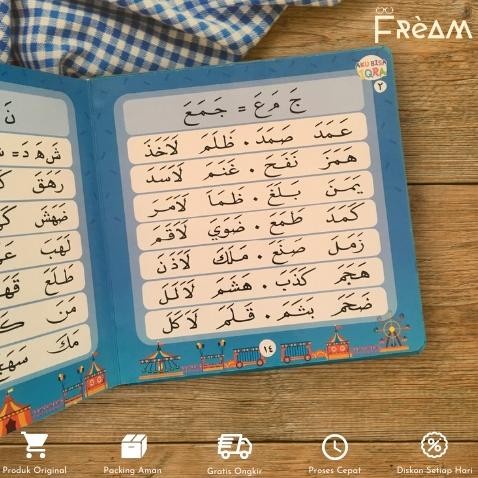 FRÈAM
AKU BISA
IQRA
٢
جَ مَ عَ = جَمَعَ
عَمَدَ صَمَدَ • ظَلَمَ لَاَخَذَ
هَمَزَ نَفَحَ • غَنَمَ لَاَسَدَ
يَمَنَ بَلَغَ • ظَمَاَ لَاَمَرَ
كَمَدَ طَمَعَ • ضَوَيَ لَاَقَمَ
زَمَلَ صَنَعَ • مَلَكَ لَاَذَنَ
هَجَمَ كَذَبَ • هَشَمَ لَاَلَلَ
ضَخَمَ بَشَمَ • قَلَمَ لَاَكَلَ
١٤
نَ
شَ هَ دَ =
رَهَقَ
ضَهَشَ
لَهَبَ
طَلَعَ
مَنَ
مَكَ
Produk Original
Packing Aman
Gratis Ongkir
Proses Cepat
Diskon Setiap Hari